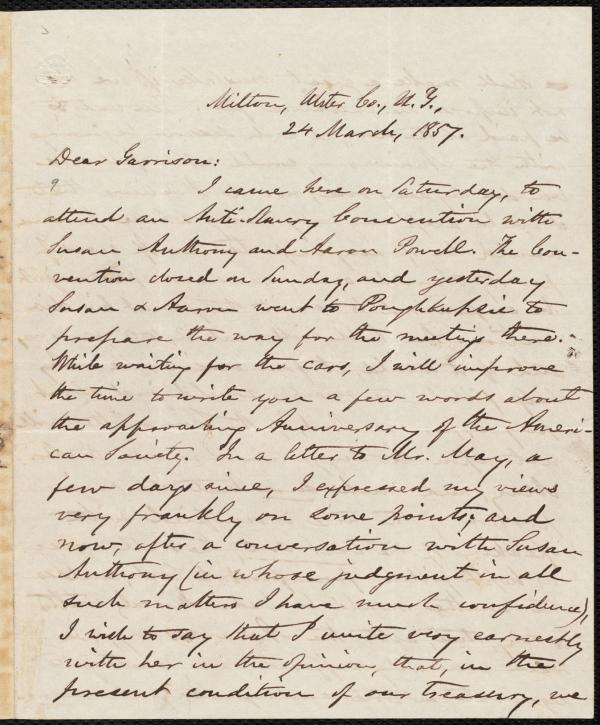 Milton, Ulster Co., N. Y.,
24 March, 1857.
Dear Garrison:
I came here on Saturday, to
attend an Anti-Slavery Convention with
Susan Anthony and Aaron Powell. The Con-
vention closed on Sunday, and yesterday
Susan & Aaron went to Poughkeepsie to
prepare the way for the meetings there.-
While waiting for the cars, I will improve
the time to write you a few words about
the approaching Anniversary of the Ameri-
can Society. In a letter to Mr. May, a
few days since, I expressed my views
very frankly on some points; and
now, after a conversation with Susan
Anthony (in whose judgment in all
such matters I have much confidence),
I wish to say that I unite very earnestly
with her in the opinion, that, in the
present condition of our treasury, we